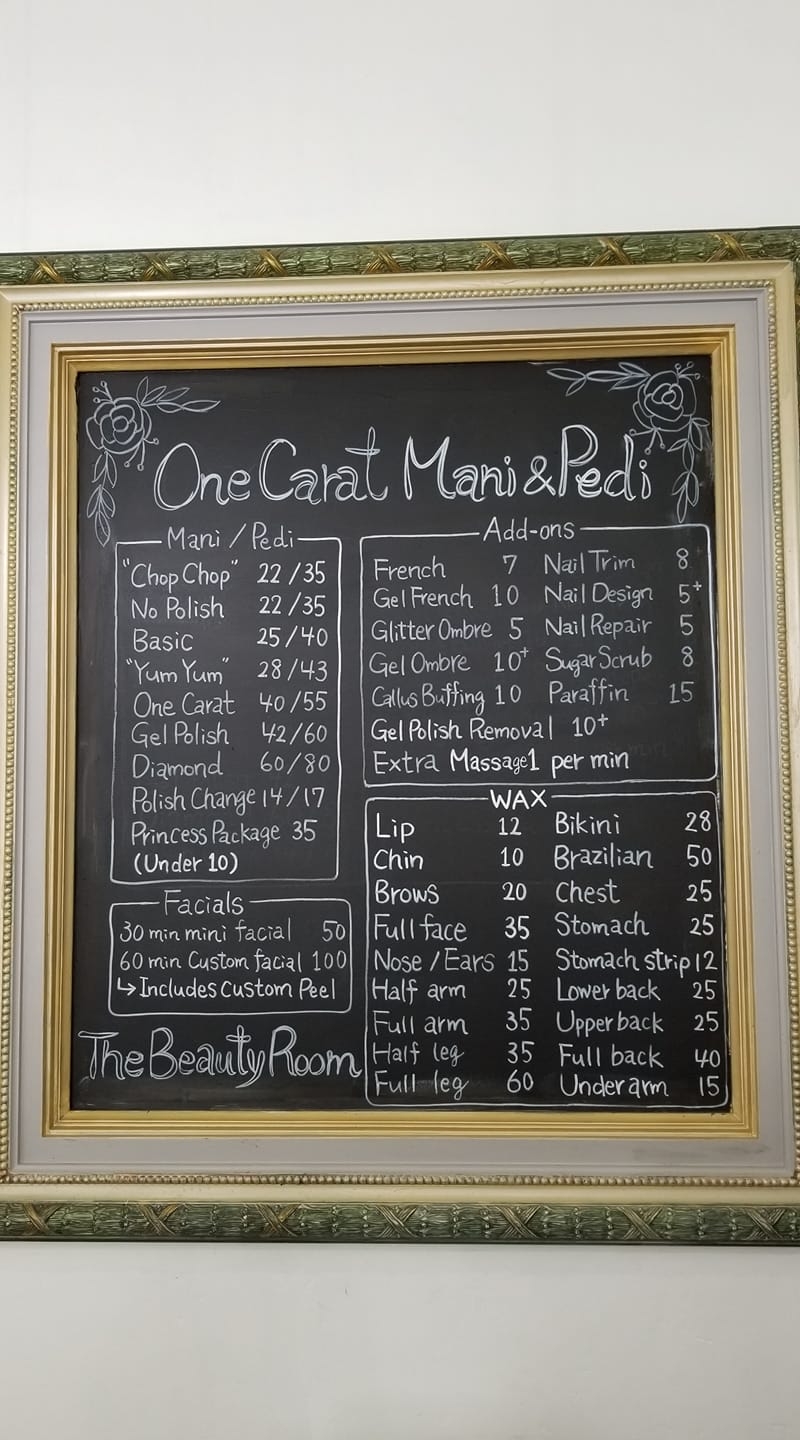 One Carat Mani & Pedi
Mani / Pedi
"Chop Chop" 22/35
No Polish 22/35
Basic 25/40
"Yum Yum" 28/43
One Carat 40/55
Gel Polish 42/60
Diamond 60/80
Polish Change 14/17
Princess Package 35
(Under 10)
Facials
30 min mini facial 50
60 min Custom facial 100
↳ Includes Custom Peel
The Beauty Room
Add-ons
French 7 Nail Trim 8
Gel French 10 Nail Design 5+
Glitter Ombre 5 Nail Repair 5
Gel Ombre 10+ Sugar Scrub 8
Callus Buffing 10 Paraffin 15
Gel Polish Removal 10+
Extra Massage 1 per min
WAX
Lip 12 Bikini 28
Chin 10 Brazilian 50
Brows 20 Chest 25
Full face 35 Stomach 25
Nose / Ears 15 Stomach strip 12
Half arm 25 Lower back 25
Full arm 35 Upper back 25
Half leg 35 Full back 40
Full leg 60 Under arm 15